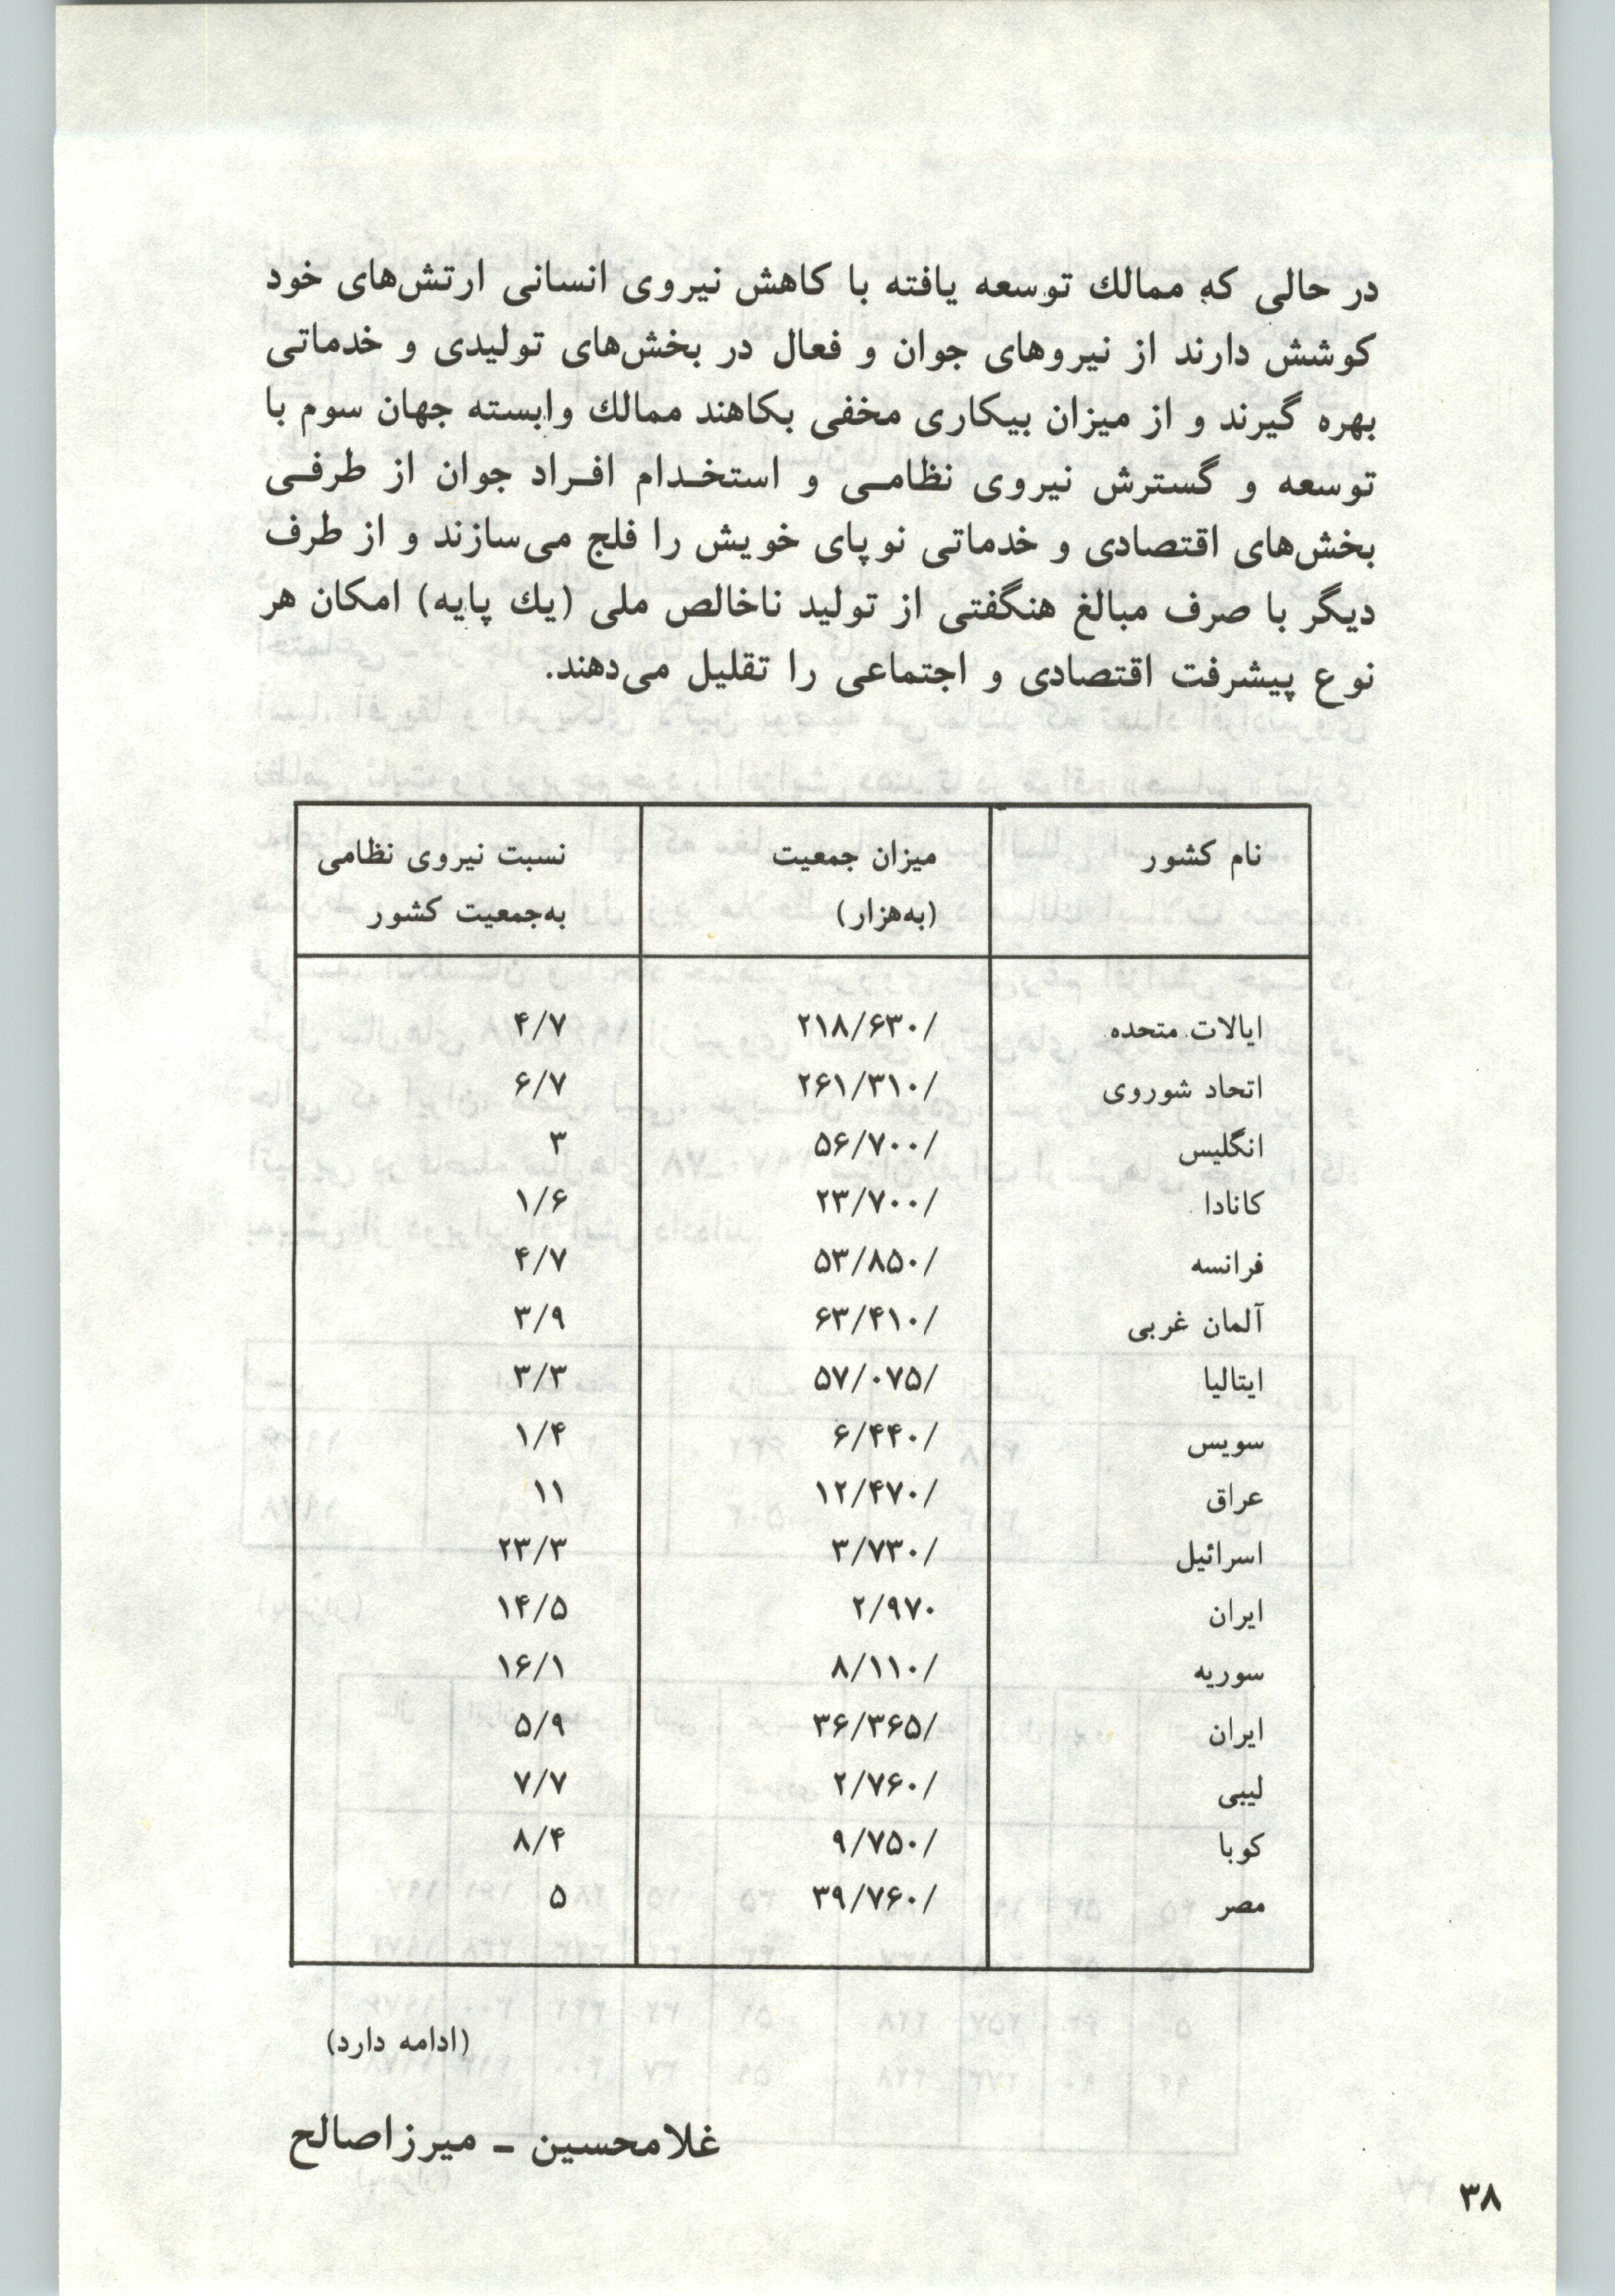 در حالی که ممالك توسعه یافته با کاهش نیروی انسانی ارتش‌های خود
کوشش دارند از نیروهای جوان و فعال در بخش‌های تولیدی و خدماتی
بهره گیرند و از میزان بیکاری مخفی بکاهند ممالك وابسته جهان سوم با
توسعه و گسترش نیروی نظامـی و استخـدام افـراد جوان از طرفـی
بخش‌های اقتصادی و خدماتی نوپای خویش را فلج می‌سازند و از طرف
دیگر با صرف مبالغ هنگفتی از تولید ناخالص ملی (یك پایه) امکان هر
نوع پیشرفت اقتصادی و اجتماعی را تقلیل می‌دهند.
نام کشور میزان جمعیت نسبت نیروی نظامی
(به‌هزار) به‌جمعیت کشور
ایالات متحده ۲۱۸/۶۳۰/ ۴/۷
اتحاد شوروی ۲۶۱/۳۱۰/ ۶/۷
انگلیس ۵۶/۷۰۰/ ۳
کانادا ۲۳/۷۰۰/ ۱/۶
فرانسه ۵۳/۸۵۰/ ۴/۷
آلمان غربی ۶۳/۴۱۰/ ۳/۹
ایتالیا ۵۷/۰۷۵/ ۳/۳
سویس ۶/۴۴۰/ ۱/۴
عراق ۱۲/۴۷۰/ ۱۱
اسرائیل ۳/۷۳۰/ ۲۳/۳
ایران ۲/۹۷۰ ۱۴/۵
سوریه ۸/۱۱۰/ ۱۶/۱
ایران ۳۶/۳۶۵/ ۵/۹
لیبی ۲/۷۶۰/ ۷/۷
کوبا ۹/۷۵۰/ ۸/۴
مصر ۳۹/۷۶۰/ ۵
(ادامه دارد)
غلامحسین ـ میرزاصالح
۳۸